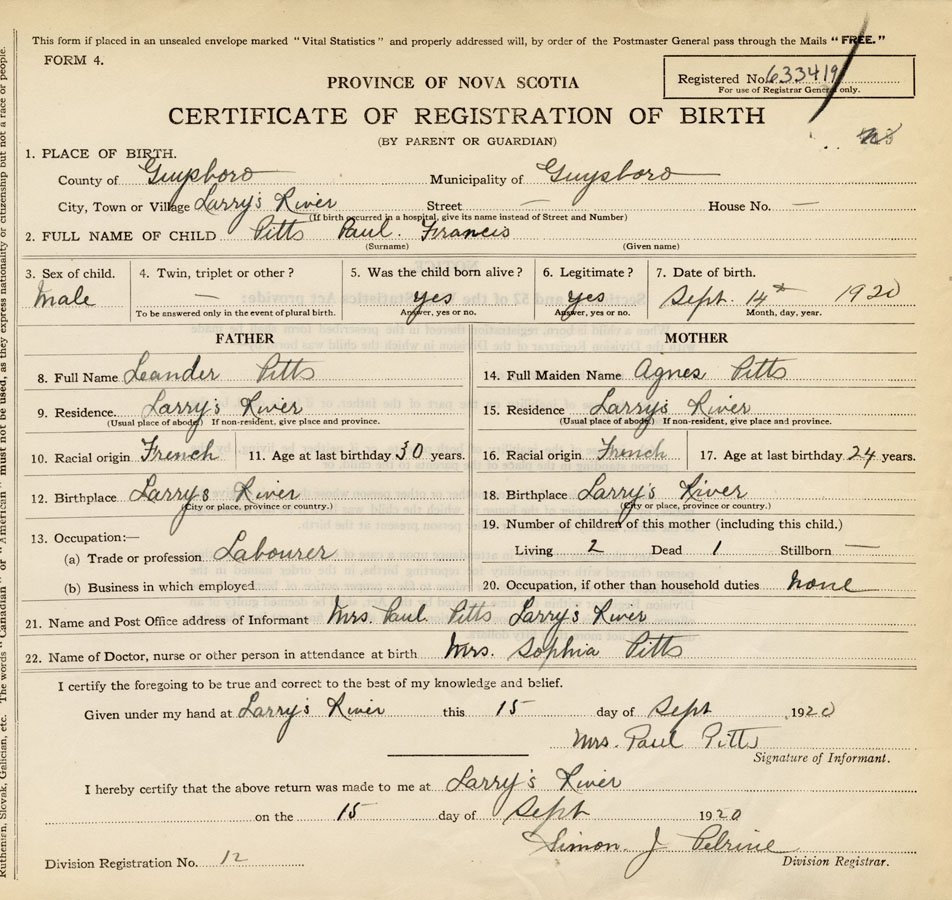 This form if placed in an unsealed envelope marked "Vital Statistics" and properly addressed will, by order of the Postmaster General pass through the Mails "FREE."
FORM 4.
PROVINCE OF NOVA SCOTIA
Registered No. 633419
For use of Registrar General only.
CERTIFICATE OF REGISTRATION OF BIRTH
(BY PARENT OR GUARDIAN)
1. PLACE OF BIRTH.
County of Guysboro Municipality of Guysboro
City, Town or Village Larry's River Street — House No. —
(If birth occurred in a hospital, give its name instead of Street and Number)
2. FULL NAME OF CHILD Pitts Paul. Francis
(Surname) (Given name)
3. Sex of child. 4. Twin, triplet or other? 5. Was the child born alive? 6. Legitimate? 7. Date of birth.
Male — yes yes Sept. 14th 1920
To be answered only in the event of plural birth. Answer, yes or no. Answer, yes or no. Month, day, year.
FATHER MOTHER
8. Full Name Leander Pitts 14. Full Maiden Name Agnes Pitts
9. Residence. Larry's River 15. Residence Larry's River
(Usual place of abode) If non-resident, give place and province. (Usual place of abode) If non-resident, give place and province.
10. Racial origin French 11. Age at last birthday 30 years. 16. Racial origin French 17. Age at last birthday 24 years.
12. Birthplace Larry's River 18. Birthplace Larry's River
(City or place, province or country.) (City or place, province or country.)
13. Occupation:— 19. Number of children of this mother (including this child.)
(a) Trade or profession Labourer Living 2 Dead 1 Stillborn —
(b) Business in which employed 20. Occupation, if other than household duties None
21. Name and Post Office address of Informant Mrs. Paul Pitts Larry's River
22. Name of Doctor, nurse or other person in attendance at birth Mrs. Sophia Pitts
I certify the foregoing to be true and correct to the best of my knowledge and belief.
Given under my hand at Larry's River this 15 day of Sept 1920
Mrs. Paul Pitts
Signature of Informant.
I hereby certify that the above return was made to me at Larry's River
on the 15 day of Sept 1920
Simon J Pelrine
Division Registration No. 12 Division Registrar.
Ruthenian, Slovak, Galician, etc. The words "Canadian" or "American" must not be used, as they express nationality or citizenship but not a race or people.